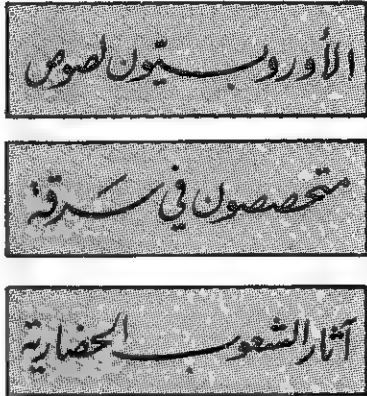 الأوروبيّون لصوص
متخصصون في سَرقة
آثار الشعوب الحضارية